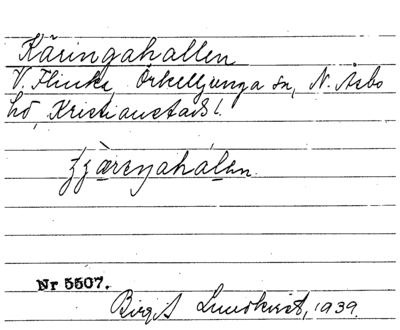 Käringahallen
V. Flinka, Örkelljunga sn, N. Åsbo
hd, Kristianstads l.
ȷȷæreŋahálan.
Nr 5507.
Birgit Lundkvist, 1939.